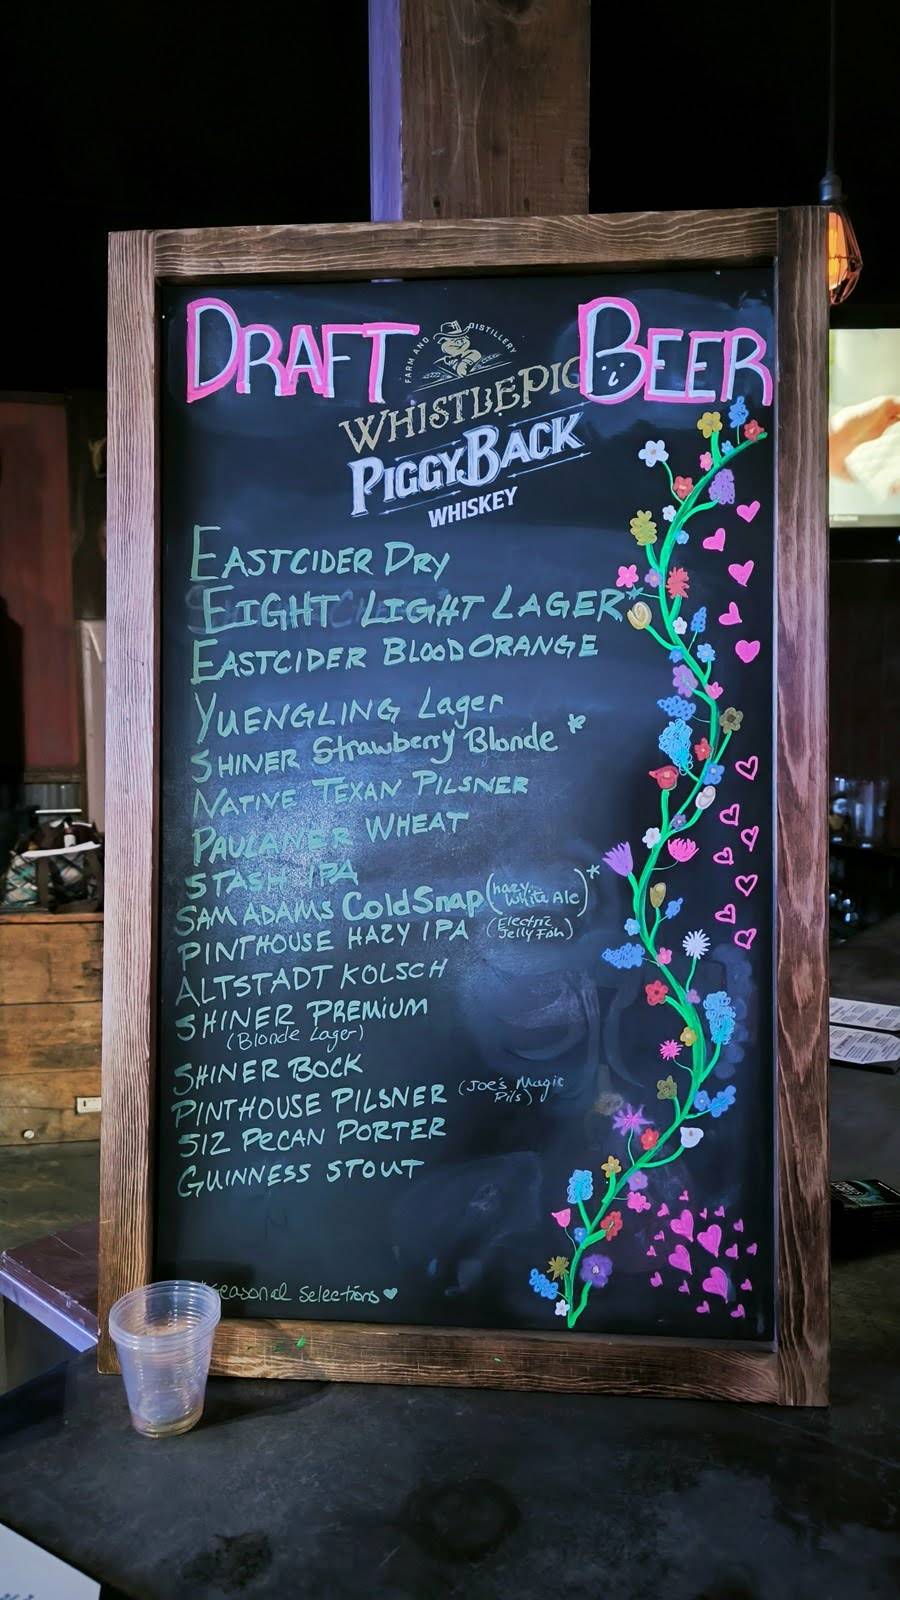 DRAFT BEER
FARM AND DISTILLERY
WHISTLEPIG
PIGGYBACK
WHISKEY
EASTCIDER DRY
EIGHT LIGHT LAGER*
EASTCIDER BLOOD ORANGE
YUENGLING Lager
SHINER Strawberry Blonde *
NATIVE TEXAN PILSNER
PAULANER WHEAT
STASH IPA
SAM ADAMS ColdSnap (hazy White Ale)*
PINTHOUSE HAZY IPA (Electric Jelly Fish)
ALTSTADT KOLSCH
SHINER PREMIUM
(Blonde Lager)
SHINER BOCK
PINTHOUSE PILSNER (Joe's Magic Pils)
512 PECAN PORTER
GUINNESS STOUT
*Seasonal Selections